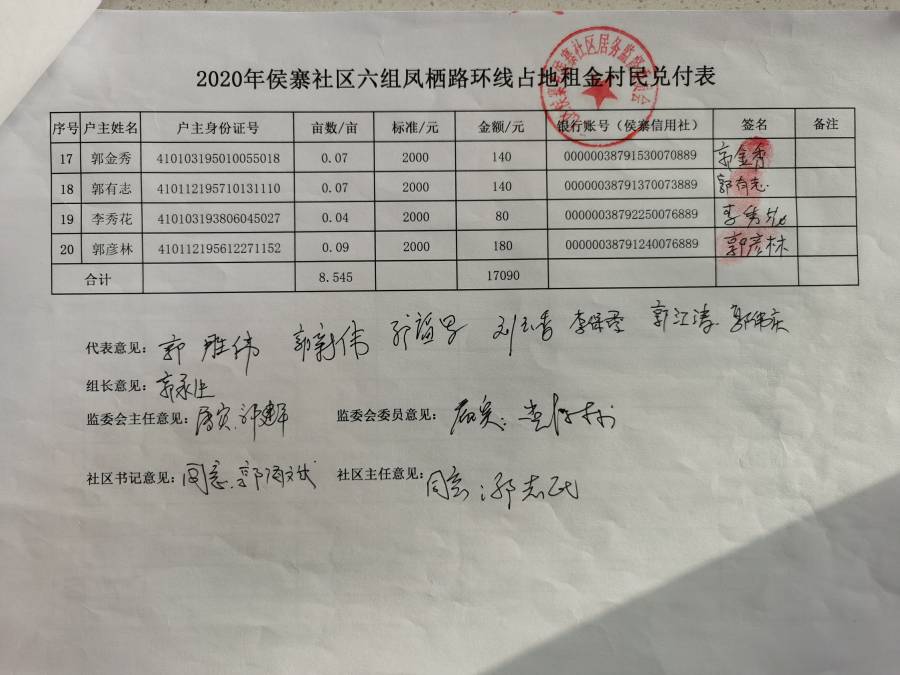 2020年侯寨社区六组凤栖路环线占地租金村民兑付表
序号 户主姓名 户主身份证号 亩数/亩 标准/元 金额/元 银行账号（侯寨信用社） 签名 备注
17 郭金秀 410103195010055018 0.07 2000 140 00000038791530070889 郭金秀
18 郭有志 410112195710131110 0.07 2000 140 00000038791370073889 郭有志
19 李秀花 410103193806045027 0.04 2000 80 00000038792250076889 李秀花
20 郭彦林 410112195612271152 0.09 2000 180 00000038791240076889 郭彦林
合计 8.545 17090
代表意见： 郭胜伟 郭新伟 刘玉香 郭江涛
组长意见：
监委会主任意见： 属实 监委会委员意见： 属实：
社区书记意见： 同意 社区主任意见： 同意